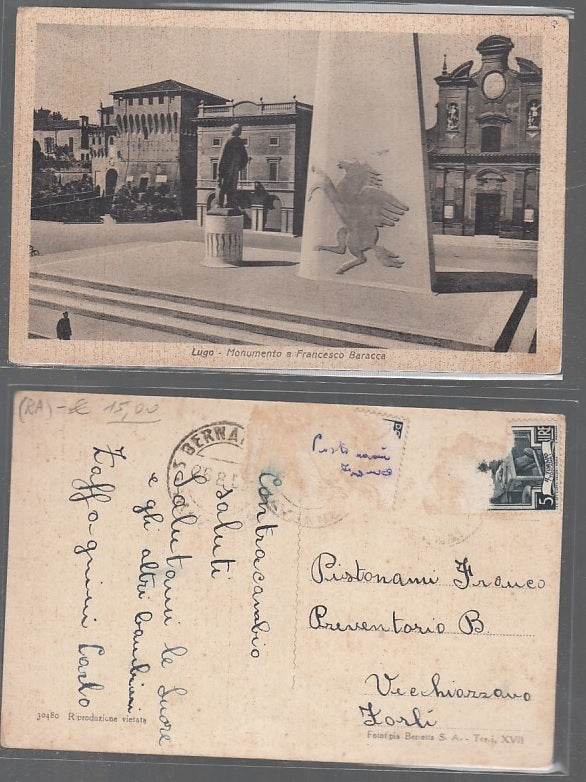 Lugo - Monumento a Francesco Baracca
(RA) - € 15,00
S. BERNA
5 LIRE
Contracambio
saluti
Salutami le Suore
e gli altri bambini
Zaffagnini Carlo
Pistonami Franco
Preventorio B.
Vecchiazzano
Forlì
30480 Riproduzione vietata
Fototipia Berretta S. A. - Terni, XVII